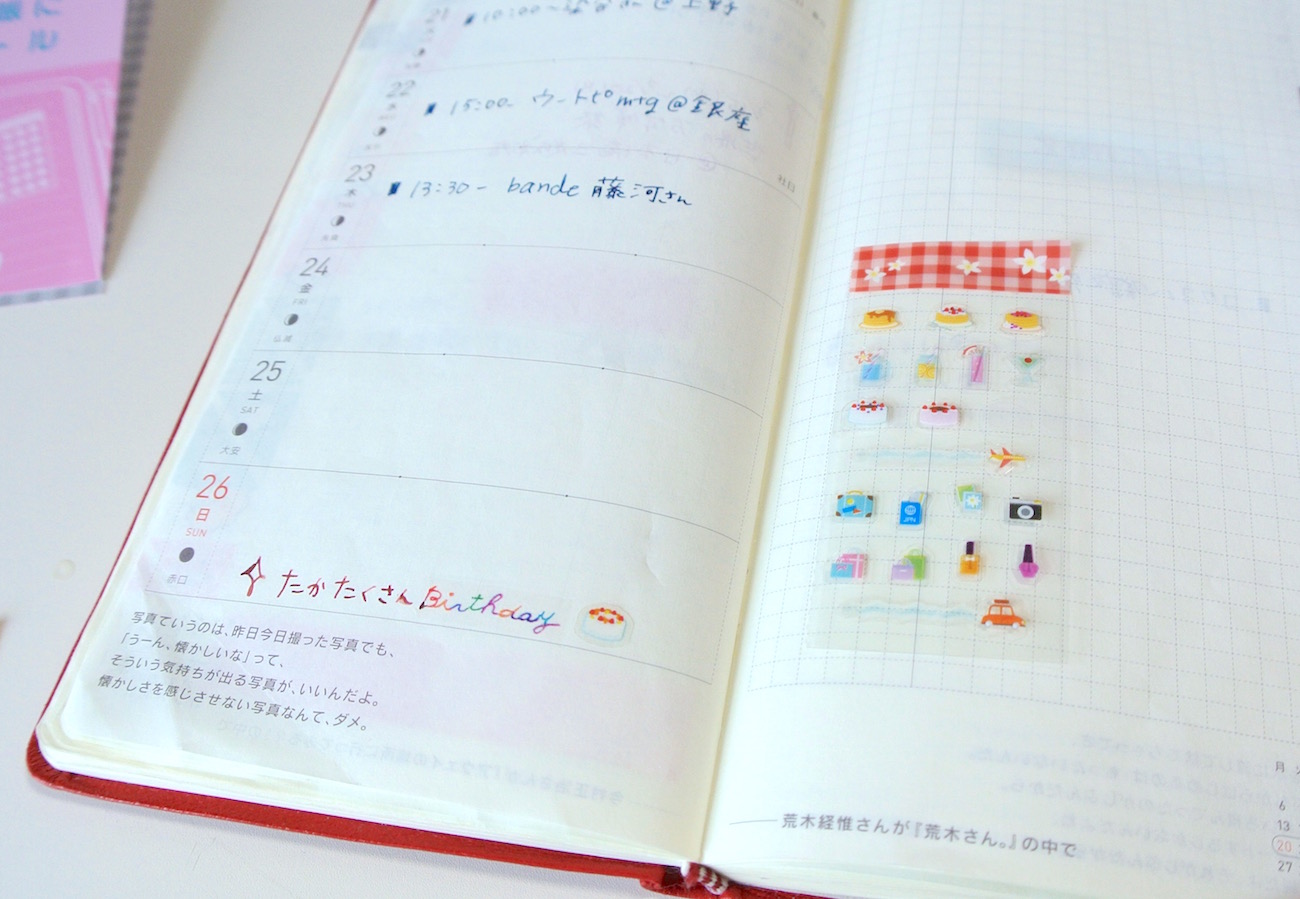 21
10:00〜 @上野
22
15:00- ウートピmtg @銀座
23
木
13:30- bande 藤河さん
社日
24
金
FRI
仏滅
25
土
SAT
大安
26
日
SUN
赤口
たかたくさんBirthday
写真ていうのは、昨日今日撮った写真でも、
「うーん、懐かしいな」って、
そういう気持ちが出る写真が、いいんだよ。
懐かしさを感じさせない写真なんて、ダメ。
JPN
荒木経惟さんが『荒木さん。』の中で
月
6
13
20
27